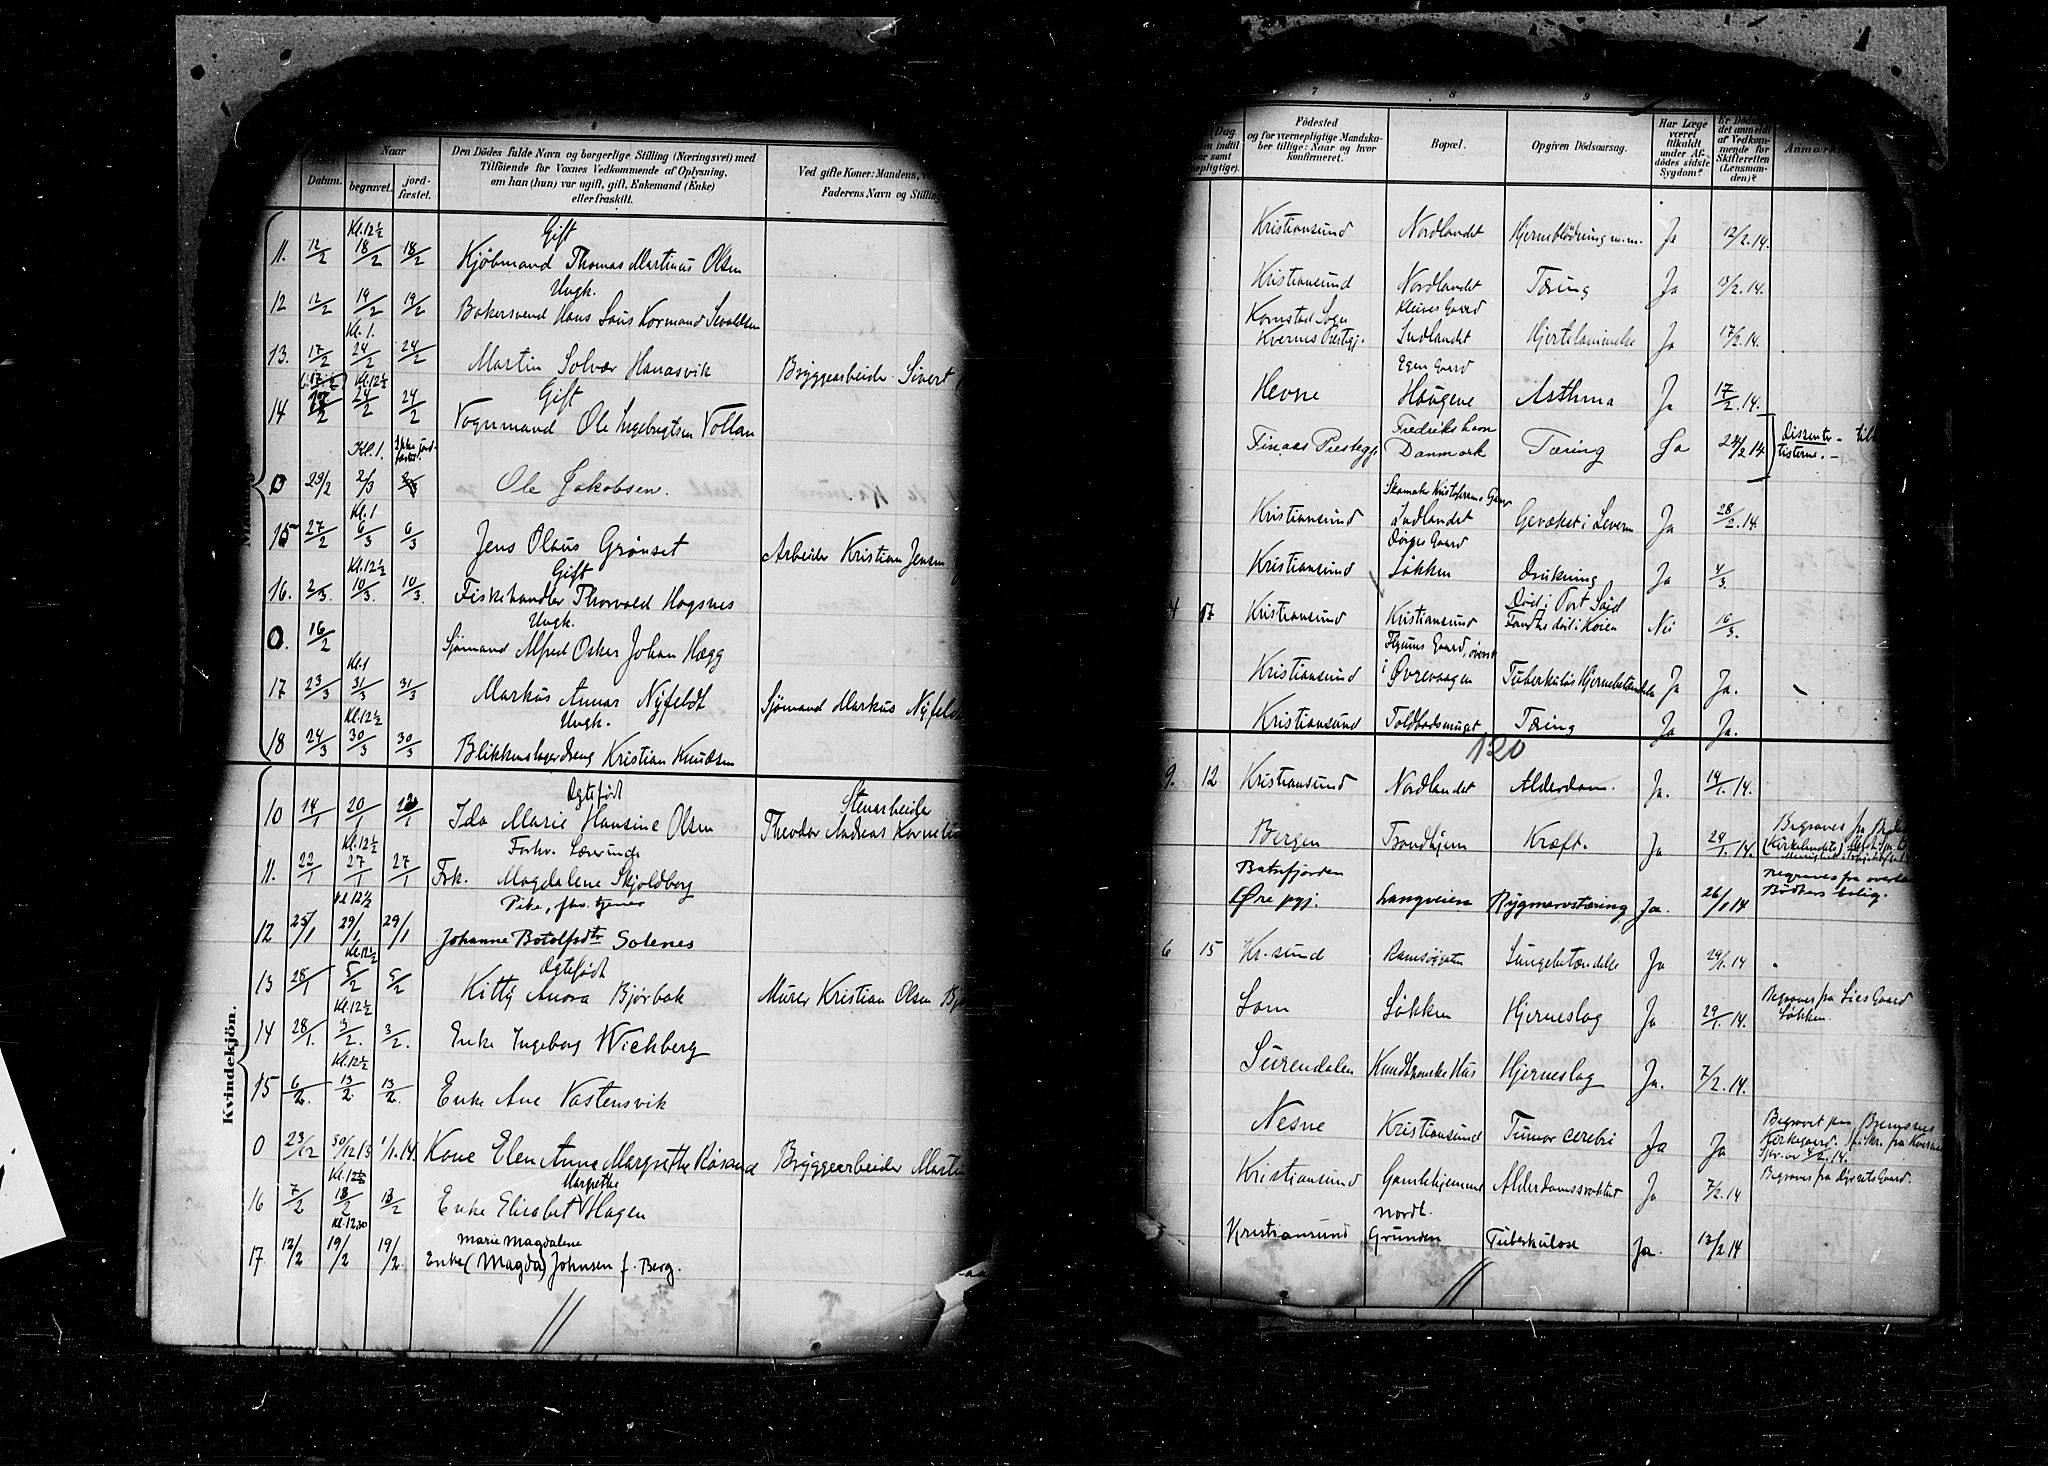 4
Naar
Datum.
begravet.
jord-
fæstet.
Den Dödes fulde Navn og borgerlige Stilling (Næringsvei) med
Tilföiende for Voxnes Vedkommende af Oplysning,
om han (hun) var ugift, gift, Enkemand (Enke)
eller fraskilt.
Ved gifte Koner: Mandens,
Faderens Navn og Stilling
Kl. 12½ Gift
11. 12/2 18/2 18/2 Kjøbmand Thomas Martinus Olsen
Ungk.
12 12/2 19/2 19/2 Bakersvend Hans Laus Normand Sevaldsen
Kl. 1.
13. 17/2 24/2 24/2 Martin Solvær Hanasvik Bryggearbeider Sivert
Kl. 12½ Gift
14 24/2 24/2 Vognmand Ole Ingebrigtsen Vollan
Kl. 1. Ikke jord-
fæstet
0 23/2 2/3 Ole Jakobsen.
Kl. 1
15 27/2 6/3 6/3 Jens Olaus Grønset Arbeider Kristian Jensen
Kl. 12½ Gift
16. 2/3. 10/3. 10/3. Fiskehandler Thorvald Hagsnes
Ungk.
0. 16/2 Sjømand Alfred Oskar Johan Hægg
Kl. 1
17 23/3 31/3 31/3 Markus Annar Nyfeldt Sjømand Markus Nyfeldt
Kl. 12½ Ungk.
18 24/3 30/3 30/3 Blikkenslagerdreng Kristian Knudsen
Kvindekjön.
Ægtefødt Stenarbeider
10 14/1 20/1 Ida Marie Hansine Olsen Theodor Andreas
Kl. 12½ Forhv. Lærerinde
11. 22/1 27/1 27/1 Frk. Magdalene Skjoldborg
Kl 12½ Pike, fhv. tjener
12 25/1 29/1 29/1 Johanne Botolfsdtr Solenes
Kl. 12½ Ægtefødt
13 28/1 5/2 5/2 Kitty Anora Bjørbak Murer Kristian Olsen
Kl. 12½
14 28/1. 3/2. 3/2. Enke Ingeborg Wichberg
Kl. 12½
15 6/2 13/2 13/2. Enke Ane Vastensvik
0 23/12 30/12 13 1/1. 14. Kone Elen Anne Margrethe Røsand Bryggearbeider Martin
Kl. 12½ Margrethe
16 7/2 13/2 13/2 Enke Elisabet Hagen
Kl. 12,30 Marie Magdalene
17. 12/2 19/2 19/2. Enke (Magda) Johnsen f. Berg.
7
8
9
Dag
Födested
og for værnepligtige Mandska-
ber tillige: Naar og hvor
konfirmeret.
Bopæl.
Opgiven Dödsaarsag.
Har Læge
været
tilkaldt
under Af-
dödes sidste
Sygdom?
Er Döds-
det anmeldt
af Vedkom-
mende for
Skifteretten
(Lensman-
den)?
Kristiansund Nordlandet Hjerneblödning m.m. Ja 12/2. 14.
Kristiansund Nordlandet Tæring Ja 13/2. 14.
Kornstad Sogn Kleives Gaard
Kvernes Prestgj. Indlandet Hjertelammelse Ja 17/2. 14.
Egen Gaard
Hevne Haugene Asthma Ja 17/2. 14.
Fredrikshavn
Finaas Prestegj. Danmark Tæring Ja 24/2 14. Dissente-
tisterne.
Skomaker Kristofersens Gaard
Kristiansund Indlandet Gevækst i Leveren Ja 28/2. 14.
Kristiansund Løkken Drukning Ja 4/3.
Død i Port Said
4 17 Kristiansund Kristiansund Fandtes død i Køien Nei 16/3.
Kristiansund i Øvrevaagen Tuberkuløs Hjernebetændelse Ja Ja.
Kristiansund Toldbodsmuget Tæring Ja Ja.
120
9. 12 Kristiansund Nordlandet Alderdom. Ja. 19/1. 14.
Bergen Trondhjem Kræft. Ja 24/1. 14. Begraves fra
Batnfjorden Begraves fra
Øre pgj. Langveien Rygmarvstæring Ja. 26/1 14 Bødkers bolig.
6 15 Kr.sund Ramsøigaten Lungebetændelse Ja 29/1. 14
Lom Løkken Hjerneslag Ja 29/1. 14. Begraves fra Lies Gaard
Løkken.
Surendalen Hjerneslag Ja. 7/2. 14.
Nesne Kristiansund Tumor cerebri Ja Ja Begravet paa Bremsnes
Kirkegaard.
Kristiansund Gamlehjemmet Alderdomssvakhet Ja 7/2. 14 Begraves fra
Nordl.
Kristiansund Grunden Tuberkulose Ja. 13/2 14